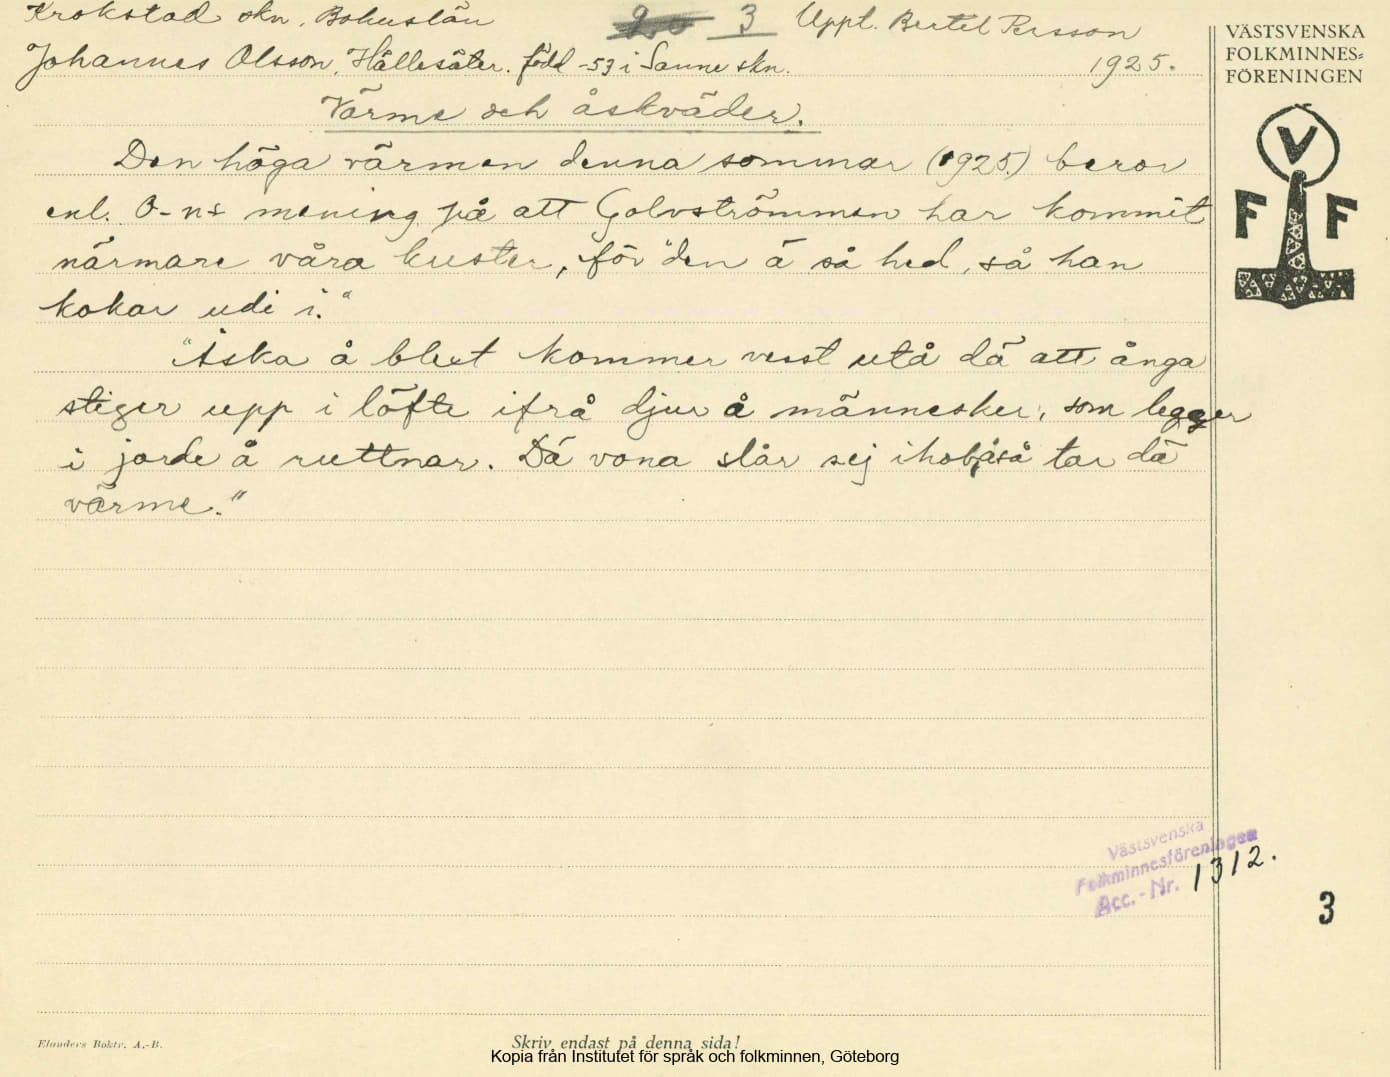 Krokstad skn, Bohuslän 3 Uppt. Bertel Persson
Johannes Olsson, Hällesäter. född -53 i Sanne skn. 1925.
Värme och åskväder.
Den höga värmen denna sommar (1925) beror
enl. O-ns mening på att Golvströmmen har kommit
närmare våra kuster, för "den ä så hed, så han
kokar udi i."
"Åska å blext kommer visst utå dä att ånga
stiger upp i löfte ifrå djur å männesker, som legger
i jorde å ruttnar. Dä vona slår sej ihob, å så tar dä
värme."
VÄSTSVENSKA
FOLKMINNES=
FÖRENINGEN
V
F F
Västsvenska
Folkminnesföreningen
Acc. - Nr. 1312.
3
Elanders Boktr. A.-B.
Skriv endast på denna sida!
Kopia från Institutet för språk och folkminnen, Göteborg